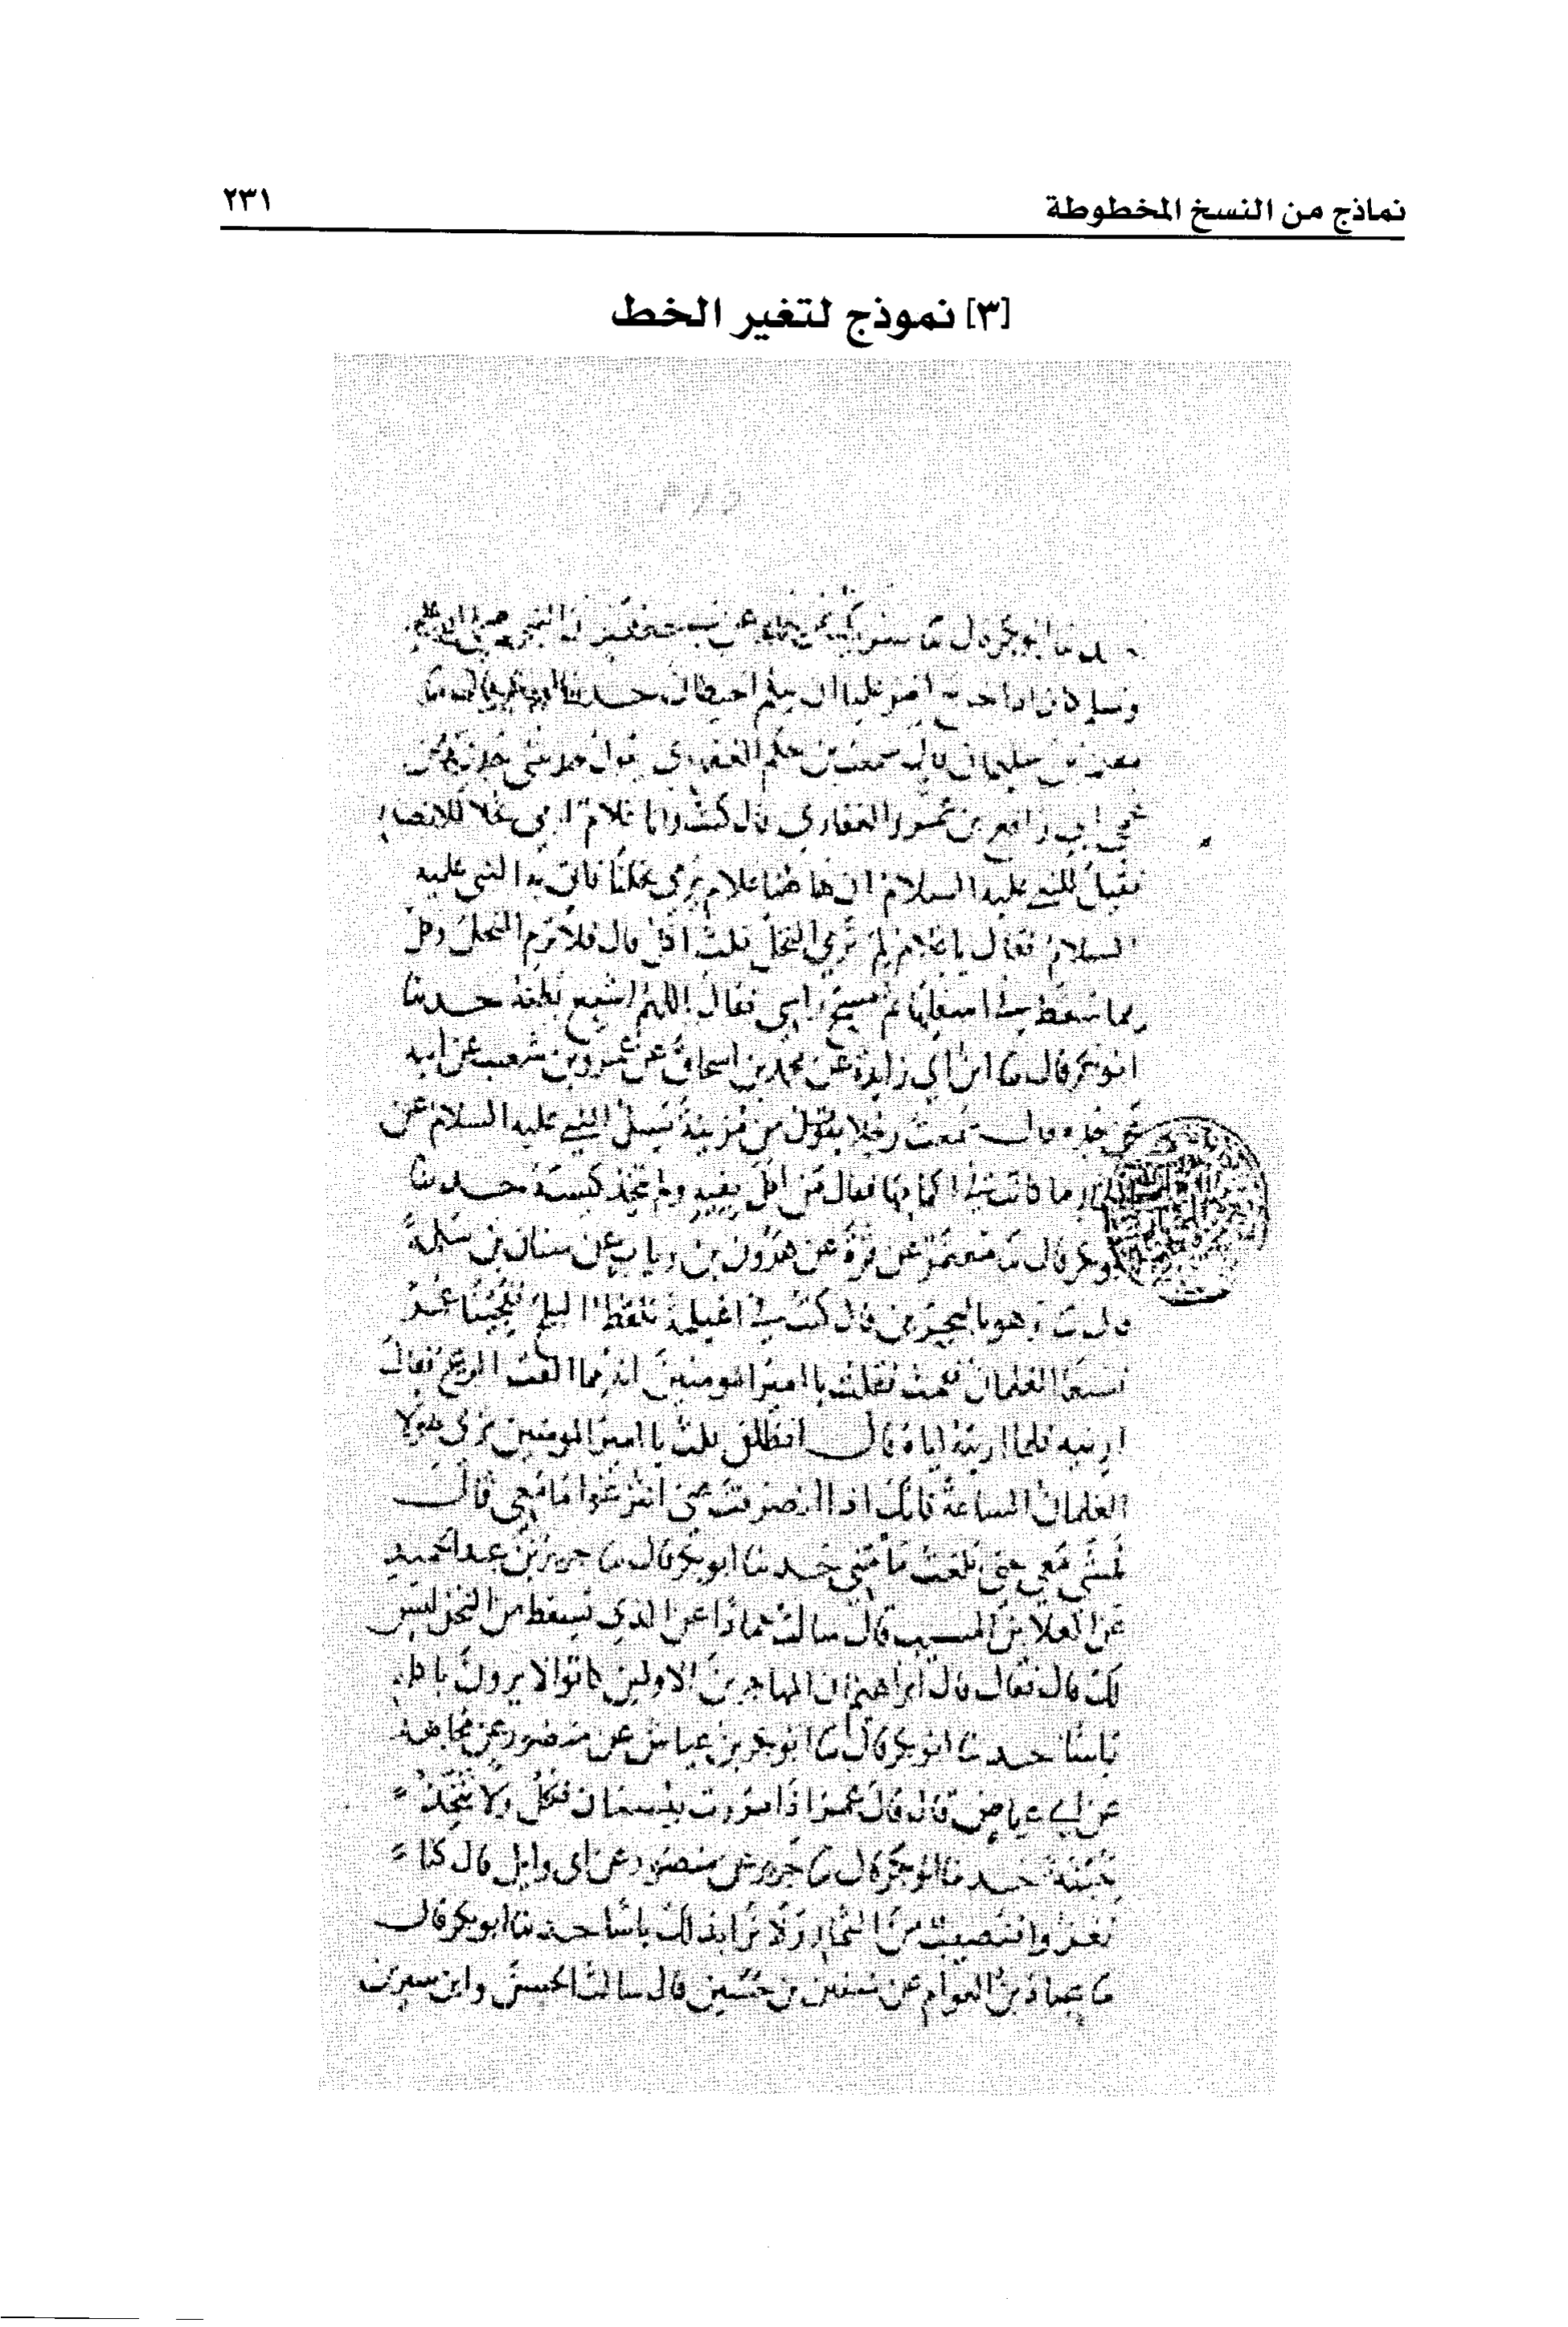 نماذج من النسخ المخطوطة
٢٣١
[٣] نموذج لتغير الخط
حدثنا ابو بكر قال
وسلم كان اذا احد حدثنا
معتمر بن سليمان قال سمعت بن حكم الغفاري يقول حدثتني جدتي عن
عم ابي رافع بن عمرو الغفاري قال كنت وانا غلام ارمي نخلا للانصار
فقيل للنبي عليه السلام ان هاهنا غلام يرمي نخلنا فاتي به النبي عليه
السلام فقال يا غلام لم ترمي النخل قلت اكل قال فلا ترم النخل وكل
مما سقط في اسفلها ثم مسح راسي فقال اللهم اشبع بطنه حدثنا
ابو بكر قال نا ابن ابي زايدة عن محمد بن اسحاق عن عمرو بن شعيب عن ابيه
عن جده قال سمعت رجلا يقول من مزينة يسل النبي عليه السلام عن
ما كانت في اكمامها فقال من اكل بفيه ولم يتخذ حدثنا
ابو بكر قال نا معتمر عن قرة عن هرون بن رياب عن سنان بن سلمة
وهو بالبحرين قال كنت في اغيلمة نلقط البلح عمر
الغلمان فقمت فقلت يا امير المومنين انه مما القت الريح فقال
ارنيه فلما اريته اياه قال انطلق قلت يا امير المومنين ترى هولا
الغلمان الساعة فانك اذا انصرفت عني انتزعوا ما معي قال
فمشى معي حتى بلغت مامني حدثنا ابو بكر قال نا جرير بن عبد الحميد
عن العلا بن المسيب قال سالت حمادا عن الذي يسقط من النخل ليس
لك قال فقال قال ابراهيم ان المهاجرين الاولين كانوا لا يرون باكله
باسا حدثنا ابو بكر قال نا ابو بكر بن عياش عن منصور عن مجاهد
عن ابي عياض قال قال عمر اذا مررت ببستان فكل ولا تتخذ
خبنة حدثنا ابو بكر قال نا جرير عن منصور عن ابي وايل قال كنا
نغزوا فنصيب من الثمار ولا نرا بذلك باسا حدثنا ابو بكر قال
نا عباد بن العوام عن سفين بن حسين قال سالت الحسن وابن سيرين